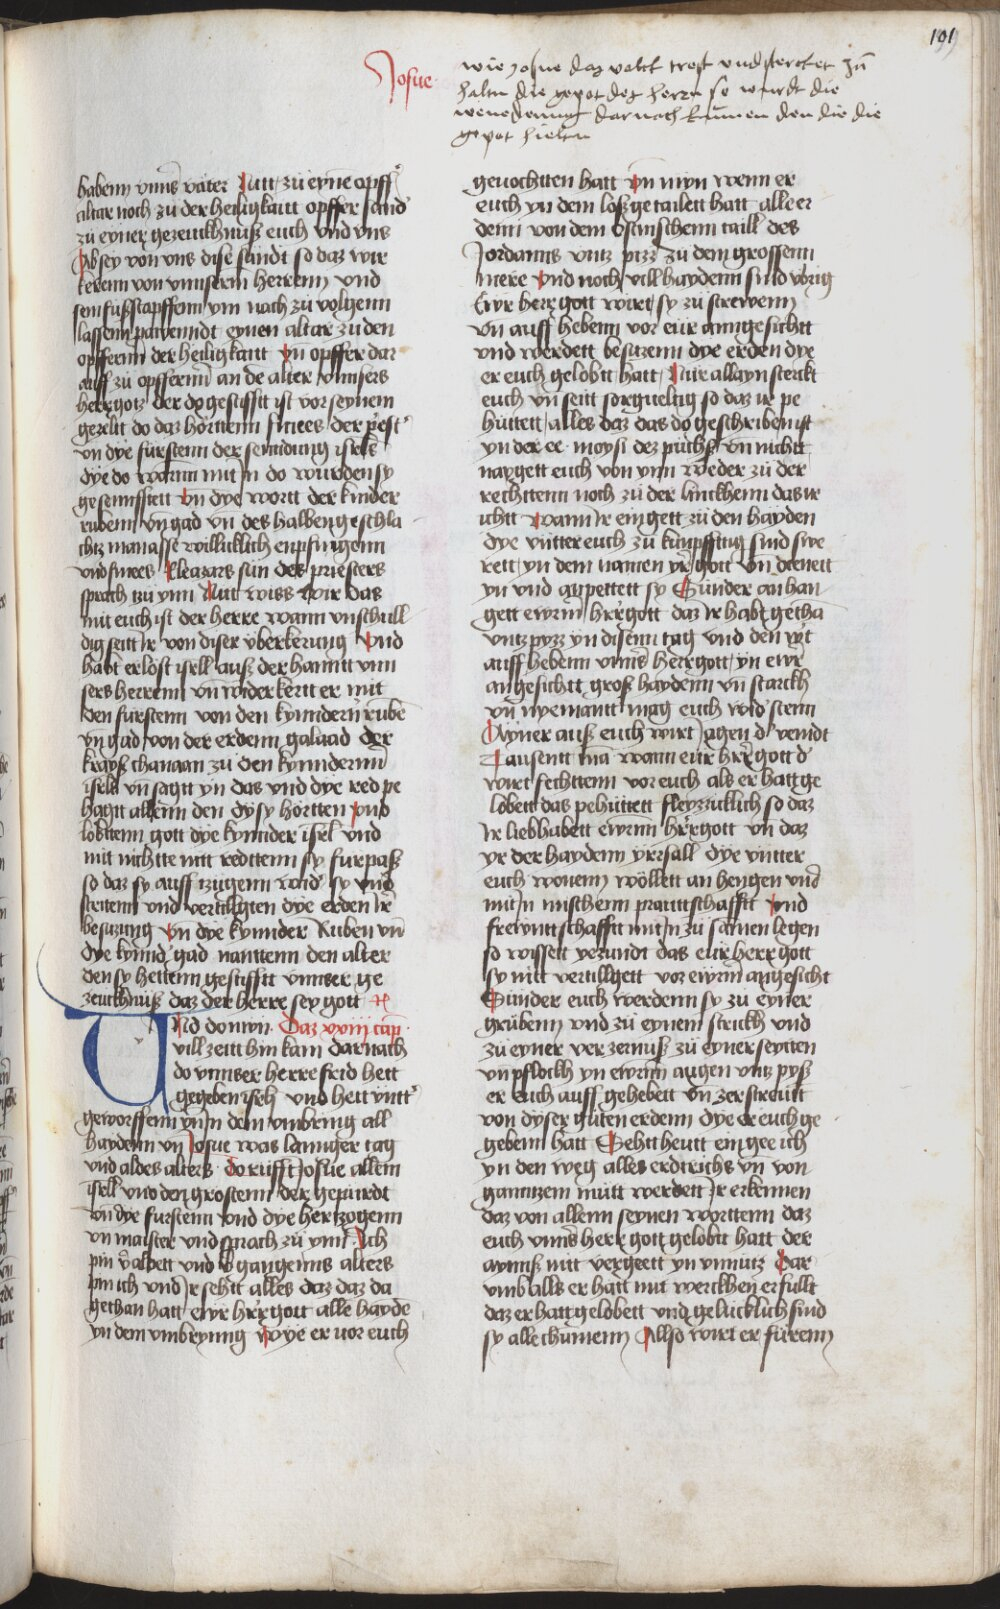 191
Josue
wie Josue daz volck trost vnd sterckett zu
haltn die gepot des herrn so wurdt die
darnach kumen den die die
gepot hieltn
habenn vnns väter Nitt zu eyne opff
altar noch zu der heiligkaitt opffer sand
zu eyner gezeuckhnüß euch vnd vns
Ab sey von vns dise sündt so daz wir
kerenn von vnnserm herrenn vnd
sein fußstapffenn ym nach zu volgenn
lassenn pawenndt eynen altar zu den
opffernn der heiligkaitt vn opffer dar
auff zu opffernn an de alter vnnsers
herr gotz der do gestifftt ist vor seynem
gezeltt do daz hörttenn finees der prest
vn dye fürstenn der senndung isrls
dye do warnn mit Jn do wurden sy
gesennfftett vn dye wortt der kinder
rubenn vn gad vn des halben geschla
chtz manasse willicklich enpfingenn
vnd finees Eleazars sün des priesters
sprach tzu ynn Nun wiss wir das
mit euch ist der herre wann vnschull
dig seitt ir von diser yberkerung vnd
habt erlöst isrll auß der hanntt vnn
sers herrenn vn widerkertt er mit
den fürstenn von den kynndern rube
vn gad von der erdenn galaad der
krayß chanaan zu den kynndernn
isrls vn sagtt yn das vnd dye red pe
hagtt allenn den dy sy hörtten vnd
lobttenn gott dye kynnder isrl vnd
mit nichtte nitt redttenn sy furpaß
so daz sy auff tzügenn wid sy vnd
streittenn vnd vertillgten dye erden ir
besitzung vn dye kynnder Ruben vn
dye kynnd gad nanttenn den alter
den sy hettenn gestifftt vnnser ge
zeuckhnüß daz der herre sey gott
Und do nun Daz xxiij cap
vill zeitt hin kam darnach
do vnnser herre frid hett
gegeben isrls vnd hett vntt
geworffenn yn Jn dem vmbring all
haydenn vn Josue was lannger tag
vnd aldes alters do rüfft Josue allem
isrll vnd den grostenn der gepürdt
vn dye fürstenn vnd dye hertzogenn
vn maister vnd sprach zu ynn Ich
pin valtett vnd vgangenns alters
pin ich vnd Jr sehtt alles daz daz da
gethan hatt ewr herr gott alle hayde
yn dem vmbryng wye er vor euch
gevochtten hatt vn nun wenn er
euch yn dem loß getailett hatt alle er
denn von dem östnischenn taill des
Jordanns vntz pizz zu dem grossenn
mere vnd noch vill haydenn sind vbrig
Ewr herr gott wirt sy zu strewenn
vn auff hebenn vor eur anngesichtt
vnd werdett besitzenn dye erden dye
er euch gelobtt hatt Nur allayn sterckt
euch vn seitt sorgueltig so daz ir pe
hüttett alles daz das do geschriben ist
yn der ee moysi dez püchs vn nichtt
naygett euch von ynn weder zu der
rechttenn noch zu der linckhenn das ir
ichtt wann ir ein gett zu den hayden
dye vntter euch zu künpfftig sind swe
rett yn dem namen yr gott vn dieneit
yn vnd anpettett sy Sünder an han
gett ewrm herr gott daz ir habt getha
vntz pyzz yn disenn tag vnd den wirt
auff hebenn vnns herr gott yn ewr
angesichtt groß haydenn vn starckh
vn nyemantt mag euch wid stenn
Ayner auß euch wirt Jagen d veindt
Tausentt ma wann eur herr gott d
wirt fechttenn vor euch als er hatt ge
lobett das pehüttett fleyzzicklich so daz
ir liebhabett ewrnn herr gott vn daz
yr der haydenn yrrsall dye vntter
euch wonenn wöllett an hengen vnd
mit Jn mischenn prauttschafftt vnd
frewnttschafftt mit Jn zu samen legen
so wissett yezundt das eur herr gott
sy nitt vertillgett vor ewrm angesicht
Sünder euch werdenn sy zu eyner
grübenn vnd zu eynem strickh vnd
zu eyner verzernüß zu eyner seytten
vn pflockh yn ewrm augen vntz pyß
er euch auff gehebett vn zerstreütt
von dyser güten erdenn dye er euch ge
gebenn hatt Sehtt heutt ein gee ich
yn den weg alles erdtrichs vn von
ganntzem mütt werdett ir erkennen
daz von allenn seynen worttenn daz
euch vnns herr gott gelobtt hatt der
aynüß nitt vergeett yn vnnütz Dar
vmb alls er hatt mit werckhen erfüllt
daz er hatt gelobett vnd gelücklich sind
sy alle chumenn Allso wirt er fürenn